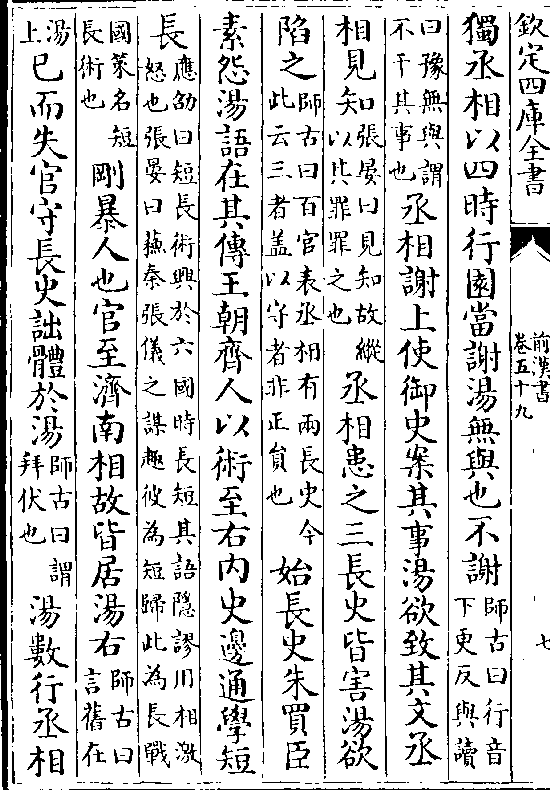 欽定四庫全書
前漢書
卷五十九
七
獨丞相以四時行園當謝湯無與也不謝師古曰行音下更反與讀
曰豫無與謂不干其事也丞相謝上使御史案其事湯欲致其文丞
相見知張晏曰見知故縱以其罪罪之也丞相患之三長史皆害湯欲
陷之師古曰百官表丞相有兩長史今此云三者盖以守者非正貟也始長史朱買臣
素怨湯語在其傳王朝齊人以術至右内史邊通學短
長應劭曰短長術興於六國時長短其語隱謬用相激怒也張晏曰蘇秦張儀之謀趣彼為短歸此為長戰
國策名短長術也剛暴人也官至濟南相故皆居湯右師古曰言舊在
湯上已而失官守長史詘體於湯師古曰謂拜伏也湯數行丞相